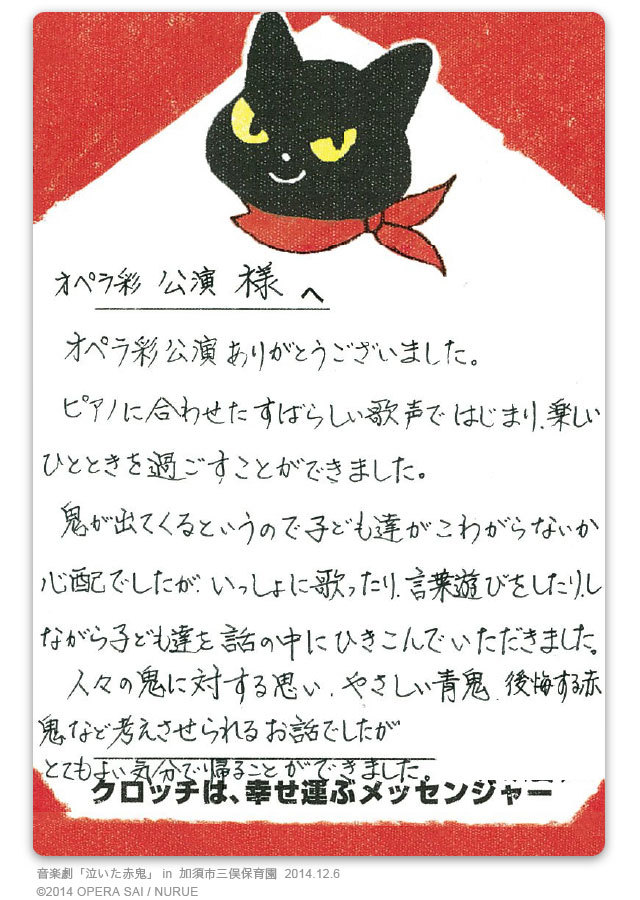 オペラ彩 公演 様 へ
オペラ彩公演ありがとうございました。
ピアノに合わせたすばらしい歌声ではじまり、楽しい
ひとときを過ごすことができました。
鬼が出てくるというので子ども達がこわがらないか
心配でしたが、いっしょに歌ったり、言葉遊びをしたりし
ながら子ども達を話の中にひきこんでいただきました。
人々の鬼に対する思い、やさしい青鬼、後悔する赤
鬼など考えさせられるお話でしたが
とてもよい気分で帰ることができました。
クロッチは、幸せ運ぶメッセンジャー
音楽劇「泣いた赤鬼」 in 加須市三俣保育園 2014.12.6
©2014 OPERA SAI / NURUE